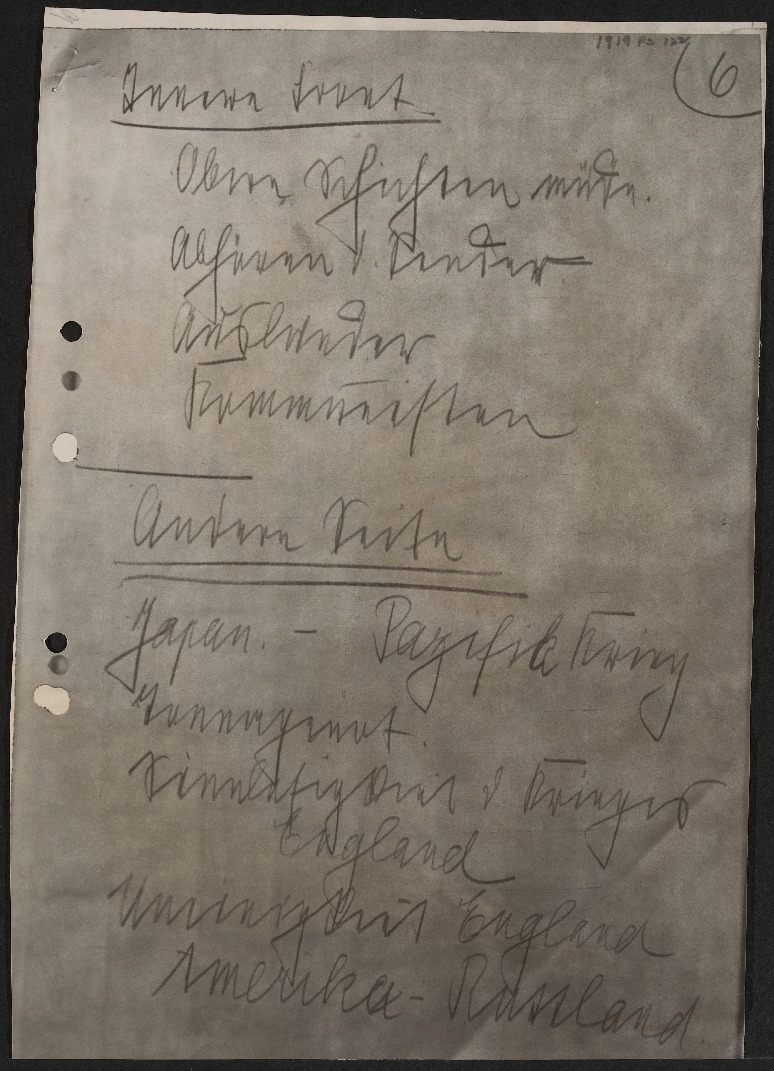 1919 PS 122
6
Innere Front
Obere Schichten müde.
Abhören d. Sender
Ausländer
Kommunisten
Andere Seite
Japan. – Pazifik Krieg
Innenfront.
Sinnlosigkeit d Krieges
England
Uneinigkeit England
Amerika – Russland.